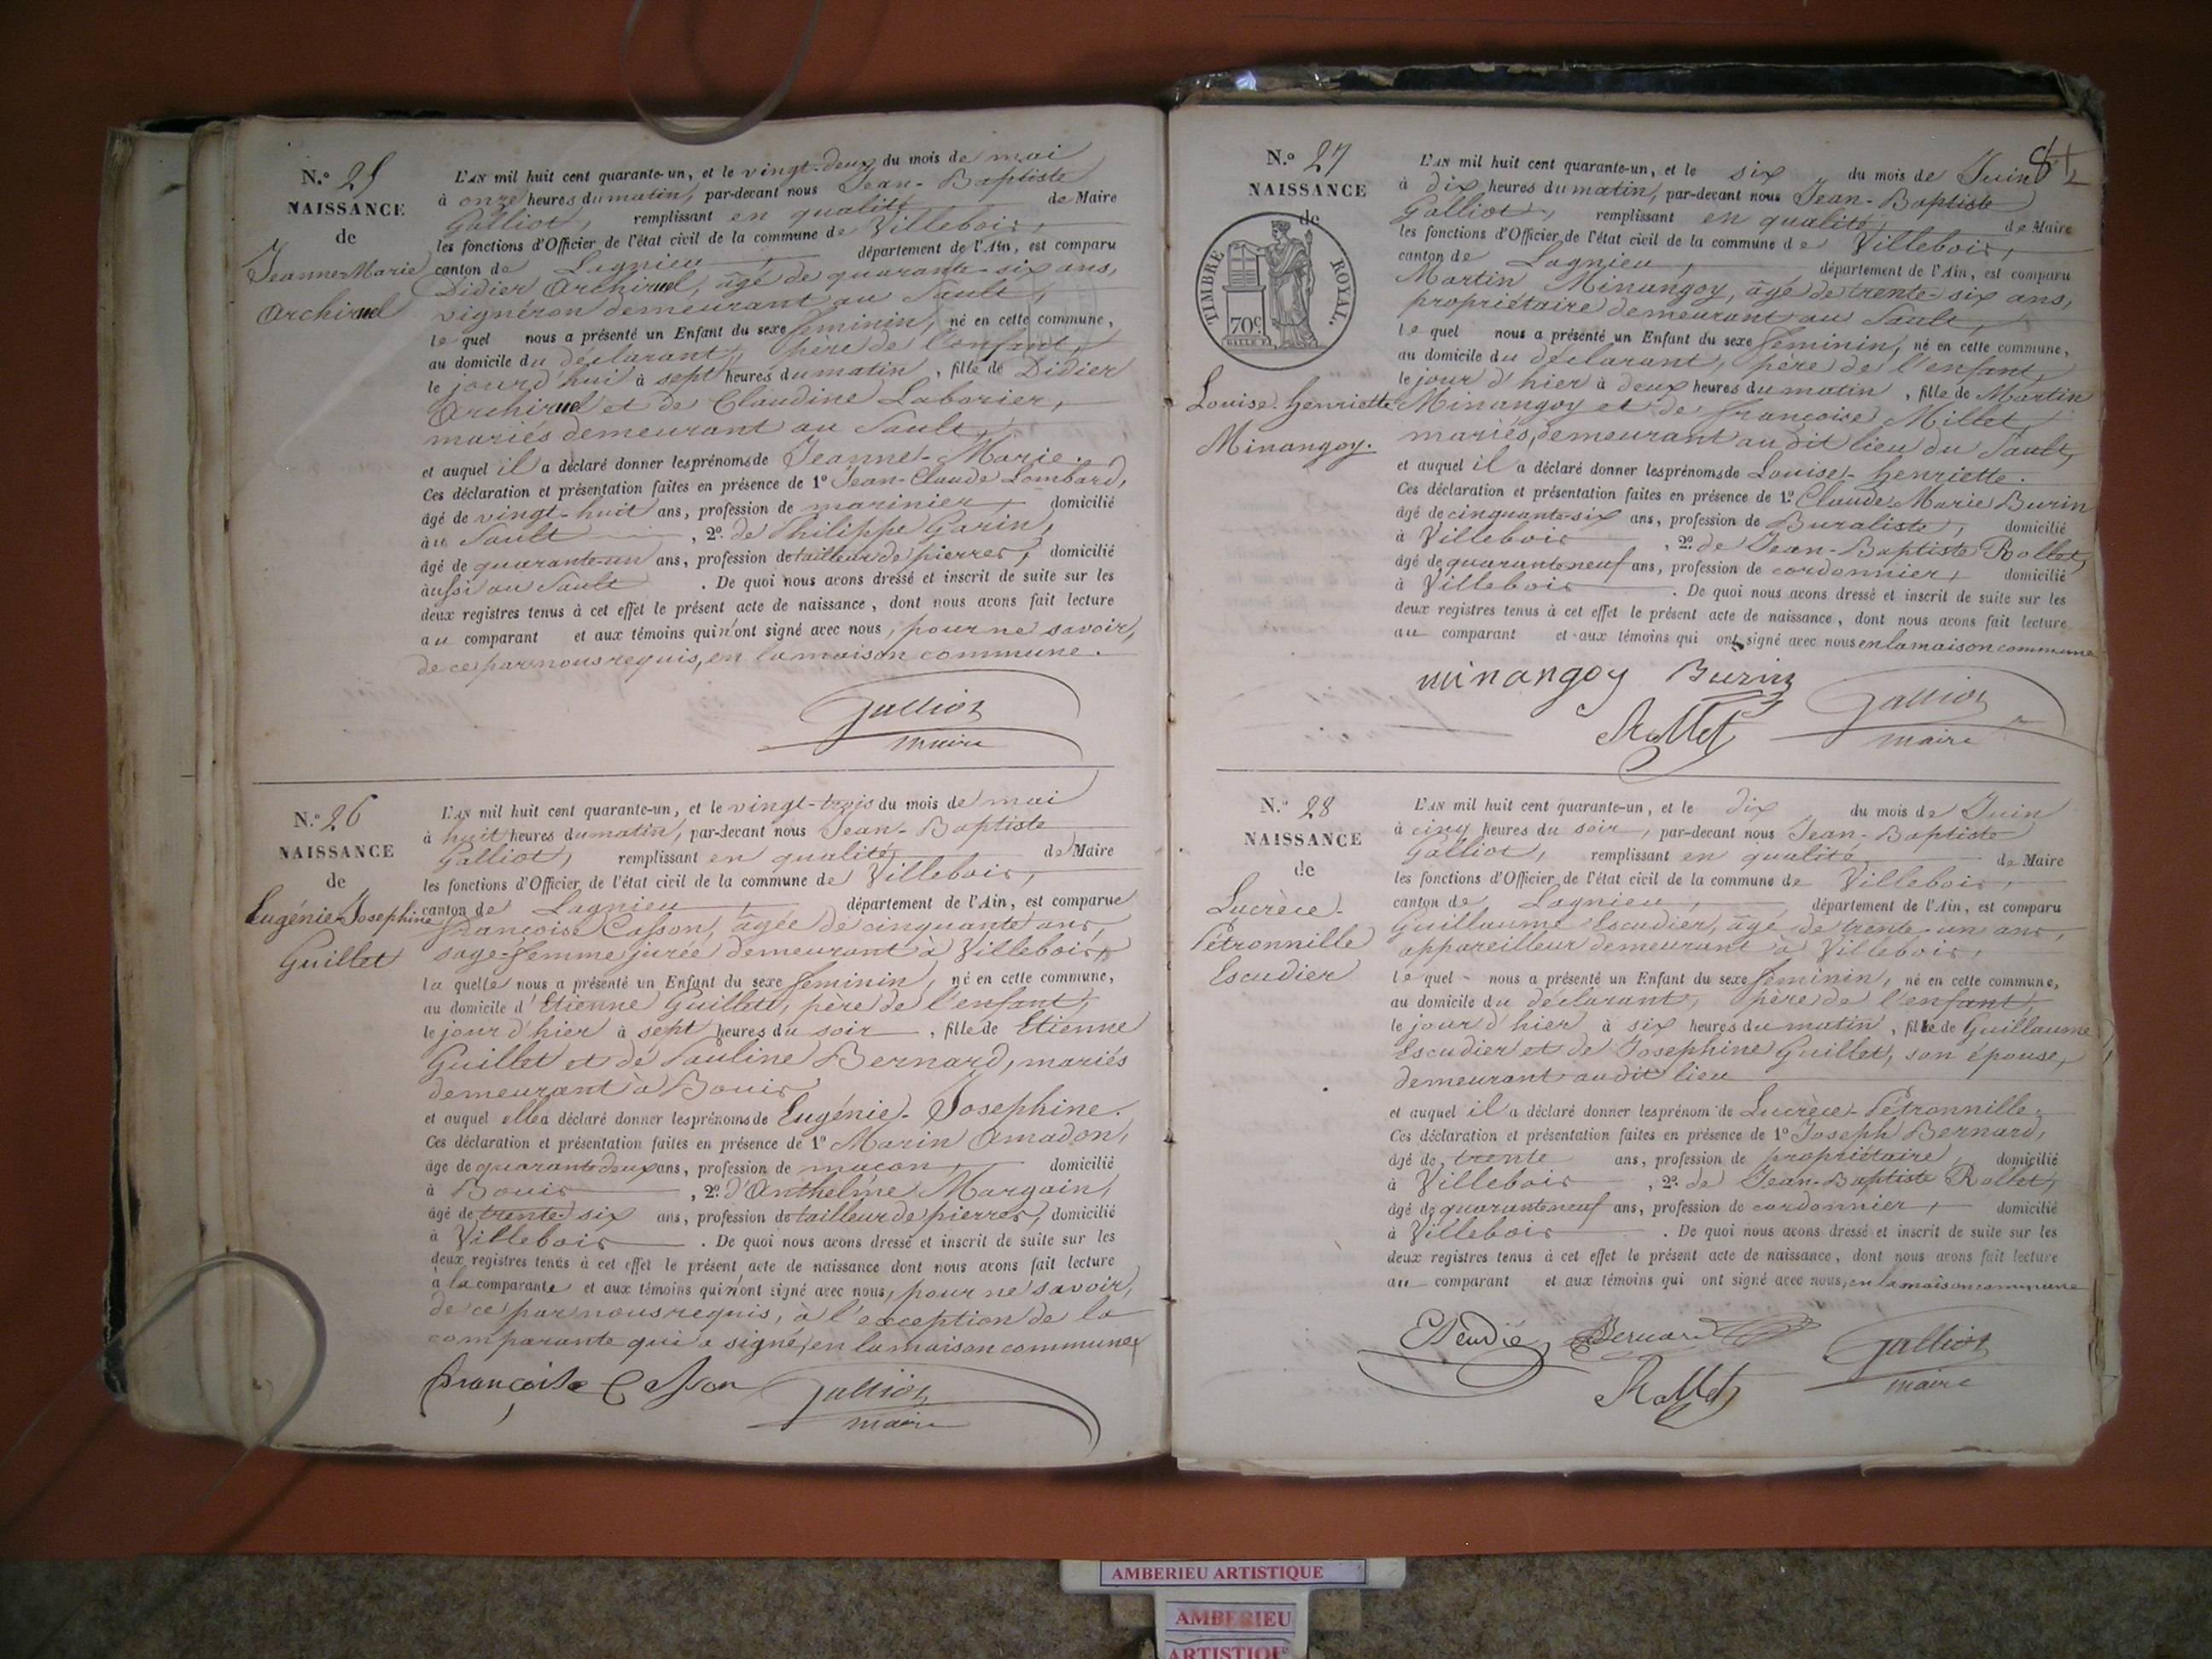 N.° 25
NAISSANCE
de
Jeanne-Marie
Archirel
L'AN mil huit cent quarante-un, et le vingt-deux du mois de mai
à onze heures du matin, par-devant nous Jean-Baptiste
Galliot, remplissant en qualité de Maire
les fonctions d'Officier de l'état civil de la commune de Villebois,
canton de Lagnieu, département de l'Ain, est comparu
Didier Archirel, âgé de quarante-six ans,
vignéron demeurant au Sault,
le quel nous a présenté un Enfant du sexe féminin, né en cette commune,
au domicile du déclarant, père de l'enfant,
le jour d'hui à sept heures du matin, fille de Didier
Archirel et de Claudine Laborier,
mariés demeurant au Sault,
et auquel il a déclaré donner les prénoms de Jeanne-Marie.
Ces déclaration et présentation faites en présence de 1° Jean-Claude Lombard,
âgé de vingt-huit ans, profession de marinier, domicilié
au Sault, 2° de Philippe Garin,
âgé de quarante-un ans, profession de tailleur de pierres, domicilié
aussi au Sault. De quoi nous avons dressé et inscrit de suite sur les
deux registres tenus à cet effet le présent acte de naissance, dont nous avons fait lecture
au comparant et aux témoins qui n'ont signé avec nous, pour ne savoir,
de ce par nous requis, en la maison commune.
Galliot
maire
N.° 26
NAISSANCE
de
Eugénie-Josephine
Guillet
L'AN mil huit cent quarante-un, et le vingt-trois du mois de mai
à huit heures du matin, par-devant nous Jean-Baptiste
Galliot, remplissant en qualité de Maire
les fonctions d'Officier de l'état civil de la commune de Villebois,
canton de Lagnieu, département de l'Ain, est comparue
Françoise Casson, âgée de cinquante ans,
sage-femme jurée demeurant à Villebois,
la quelle nous a présenté un Enfant du sexe féminin, né en cette commune,
au domicile d'Etienne Guillet, père de l'enfant,
le jour d'hier à sept heures du soir, fille de Etienne
Guillet et de Pauline Bernard, mariés
demeurant à Bouis
et auquel elle a déclaré donner les prénoms de Eugénie-Josephine.
Ces déclaration et présentation faites en présence de 1° Marin Amadon,
âgé de quarante deux ans, profession de maçon, domicilié
à Bouis, 2° d'Anthelme Margain,
âgé de trente-six ans, profession de tailleur de pierres, domicilié
à Villebois. De quoi nous avons dressé et inscrit de suite sur les
deux registres tenus à cet effet le présent acte de naissance dont nous avons fait lecture
à la comparante et aux témoins qui n'ont signé avec nous, pour ne savoir,
de ce par nous requis, à l'exception de la
comparante qui a signé, en la maison commune.
françoise Casson
Galliot
maire
N.° 27
NAISSANCE
de
TIMBRE ROYAL.
70c
Louise-henriette
Minangoy.
L'AN mil huit cent quarante-un, et le six du mois de Juin
à dix heures du matin, par-devant nous Jean-Baptiste
Galliot, remplissant en qualité, de Maire
les fonctions d'Officier de l'état civil de la commune de Villebois,
canton de Lagnieu, département de l'Ain, est comparu
Martin Minangoy, âgé de trente-six ans,
propriétaire demeurant au Sault,
le quel nous a présenté un Enfant du sexe féminin, né en cette commune,
au domicile du déclarant, père de l'enfant,
le jour d'hier à deux heures du matin, fille de Martin
Minangoy et de françoise Millet,
mariés, demeurant au dit lieu du Sault,
et auquel il a déclaré donner les prénoms de Louise-henriette.
Ces déclaration et présentation faites en présence de 1° Claude-Marie Burin
âgé de cinquante-six ans, profession de Buraliste, domicilié
à Villebois, 2° de Jean-Baptiste Rollet,
âgé de quarante neuf ans, profession de cordonnier, domicilié
à Villebois. De quoi nous avons dressé et inscrit de suite sur les
deux registres tenus à cet effet le présent acte de naissance, dont nous avons fait lecture
au comparant et aux témoins qui ont signé avec nous en la maison commune
minangoy Burin
Rollet
Galliot
maire
N.° 28
NAISSANCE
de
Lucrèce-
Pétronnille
Escudier
L'AN mil huit cent quarante-un, et le dix du mois de Juin
à cinq heures du soir, par-devant nous Jean-Baptiste
Galliot, remplissant en qualité de Maire
les fonctions d'Officier de l'état civil de la commune de Villebois,
canton de Lagnieu, département de l'Ain, est comparu
Guillaume Escudier, âgé de trente-un ans,
appareilleur demeurant à Villebois,
le quel nous a présenté un Enfant du sexe féminin, né en cette commune,
au domicile du déclarant, père de l'enfant,
le jour d'hier à six heures du matin, fille de Guillaume
Escudier et de Josephine Guillet, son épouse,
demeurant au dit lieu
et auquel il a déclaré donner les prénom de Lucrèce-Pétronnille.
Ces déclaration et présentation faites en présence de 1° Joseph Bernard,
âgé de trente ans, profession de propriétaire, domicilié
à Villebois, 2° de Jean-Baptiste Rollet,
âgé de quarante neuf ans, profession de cordonnier, domicilié
à Villebois. De quoi nous avons dressé et inscrit de suite sur les
deux registres tenus à cet effet le présent acte de naissance, dont nous avons fait lecture
au comparant et aux témoins qui ont signé avec nous, en la maison commune
Escudié Bernard
Rollet
Galliot
maire
AMBERIEU ARTISTIQUE
AMBERIEU
ARTISTIQUE